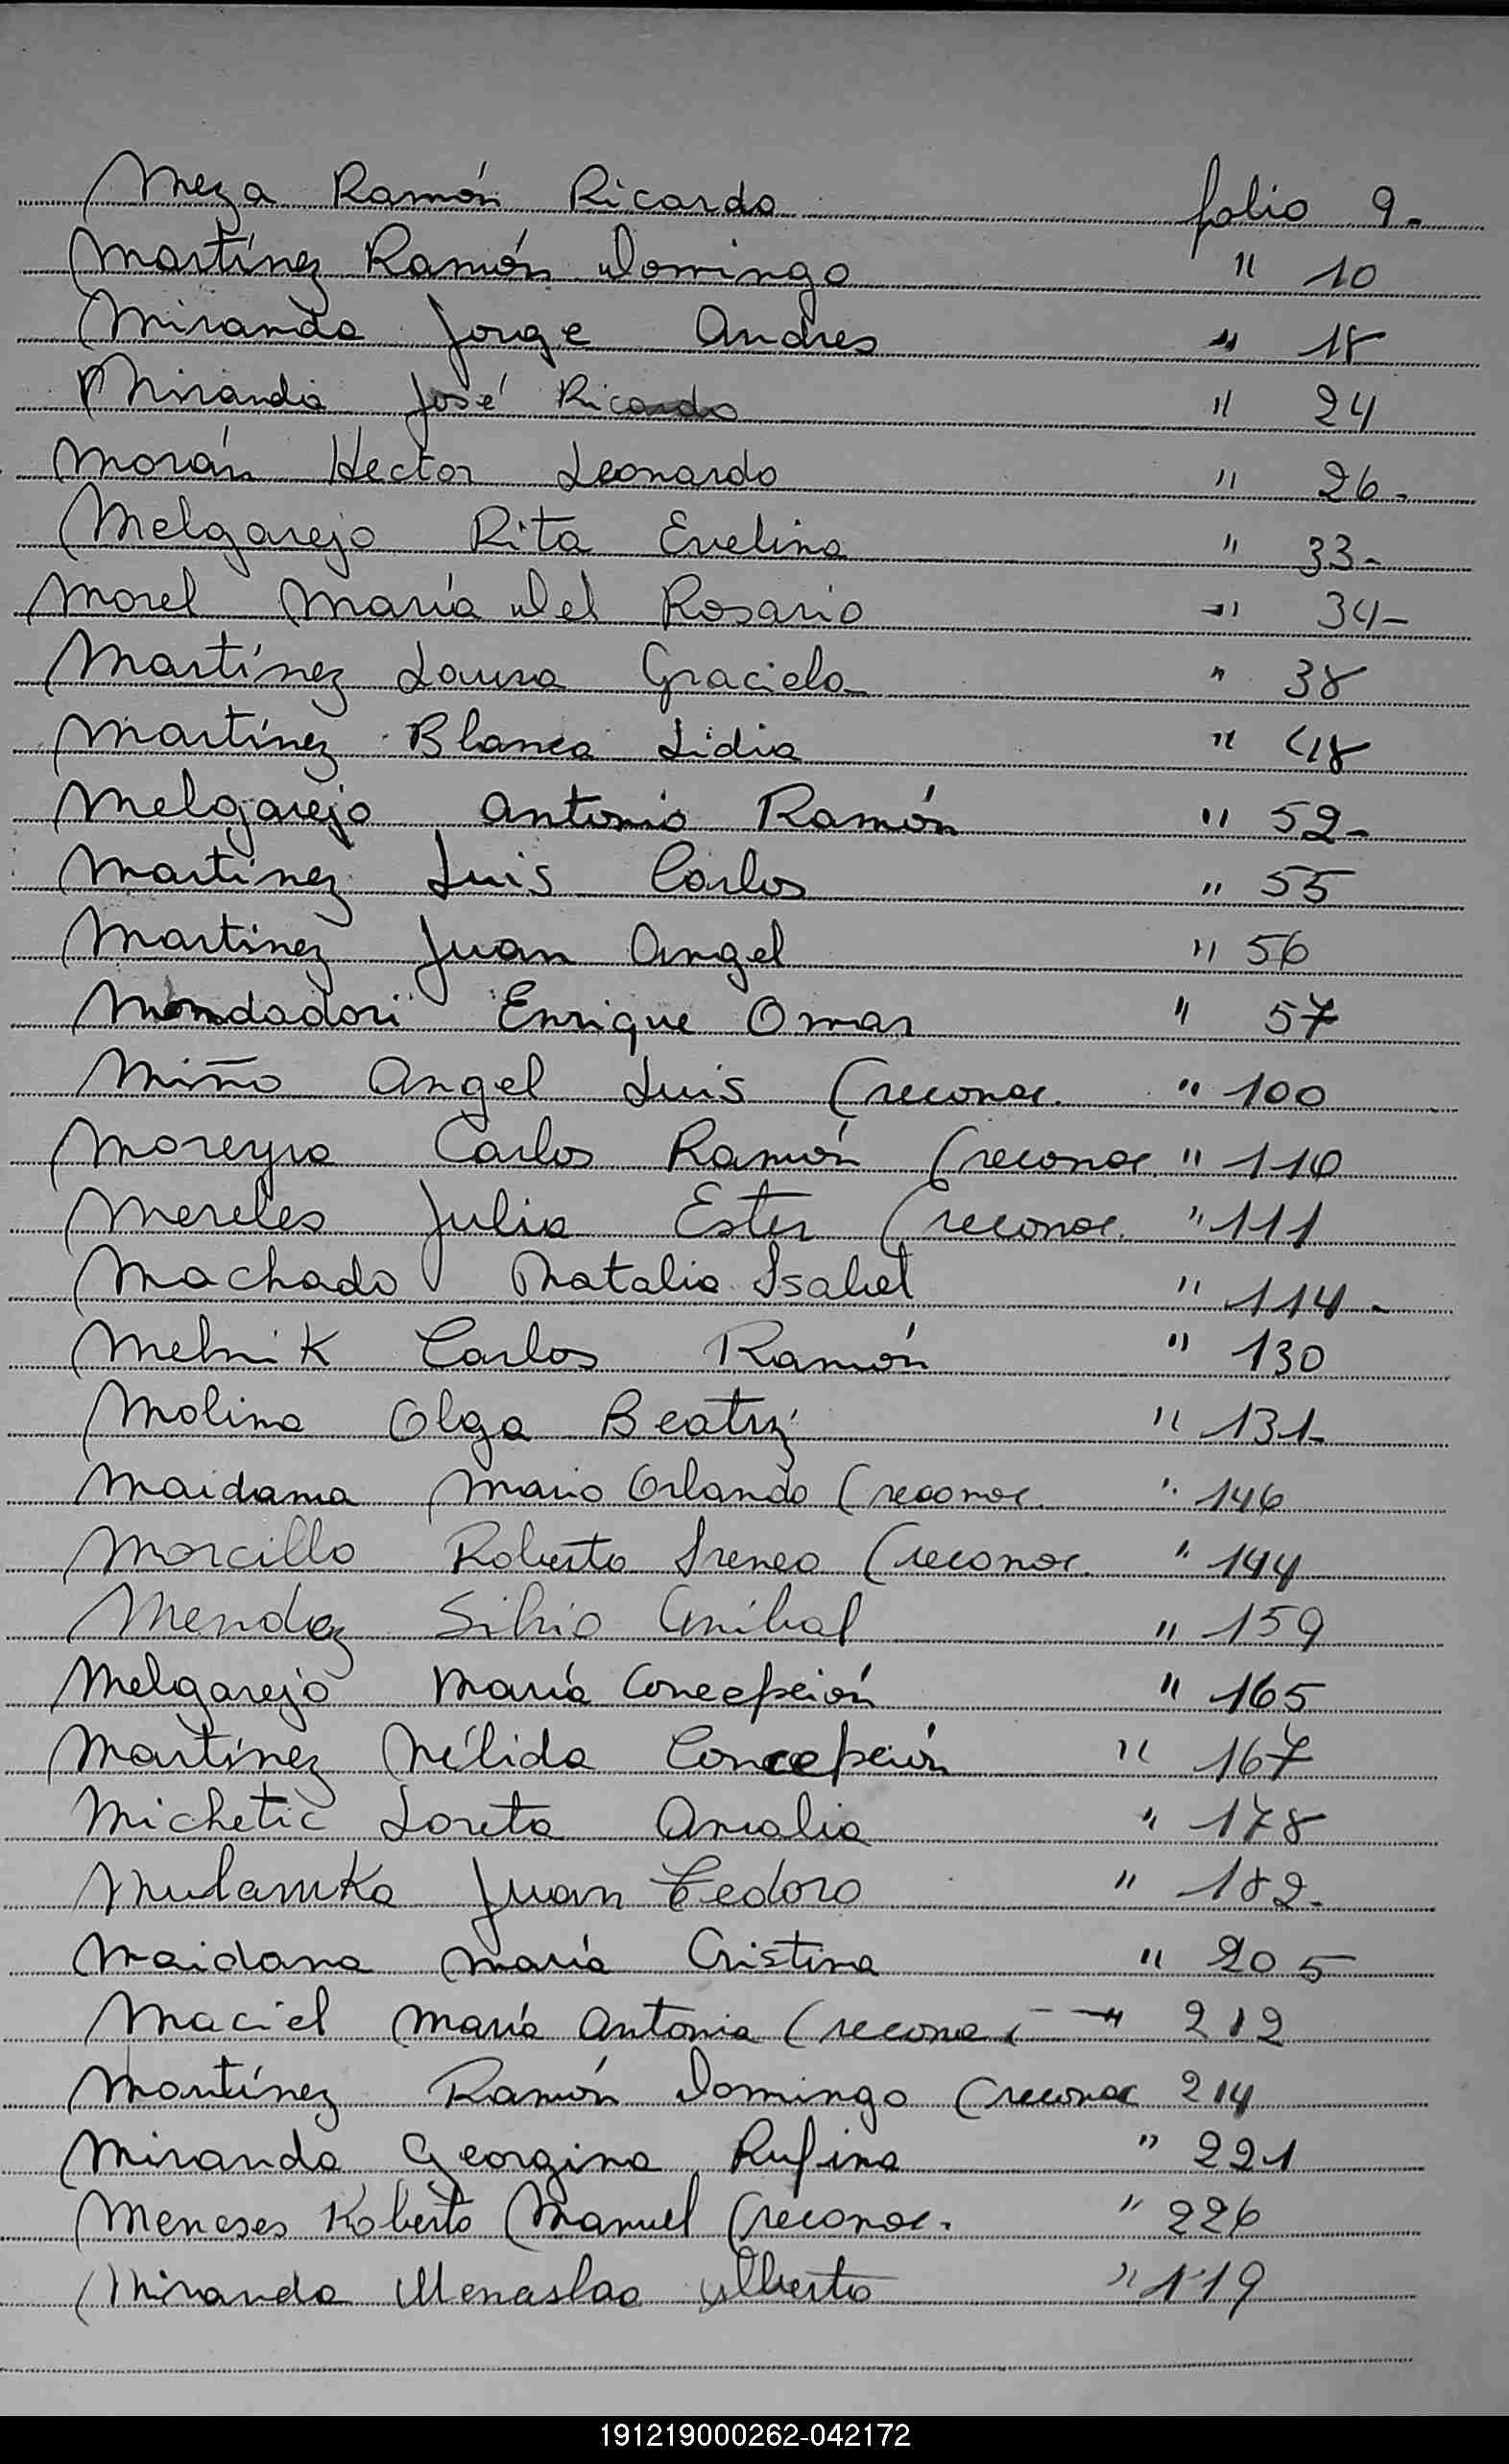 Meza Ramón Ricardo folio 9-
Martínez Ramón Domingo " 10
Miranda Jorge Andres " 18
Miranda José Ricardo " 24
Morán Hector Leonardo " 26-
Melgarejo Rita Evelina " 33-
Morel María Del Rosario " 34-
Martínez Laura Graciela " 38
Martínez Blanca Lidia " 48
Melgarejo Antonio Ramón " 52-
Martínez Luis Carlos " 55
Martínez Juan Angel " 56
Mondadori Enrique Omar " 57
Miño Angel Luis (reconoc. " 100
Moreyra Carlos Ramón (reconoc. " 110
Mereles Julia Ester (reconoc. " 111
Machado Natalia Isabel " 114-
Melnik Carlos Ramón " 130
Molina Olga Beatriz " 131-
Maidana Mario Orlando (reconoc. " 146
Morcillo Roberto Ireneo (reconoc. " 144
Mendez Silvio Aníbal " 159
Melgarejo María Concepción " 165
Martínez Nélida Concepción " 167
Michetic Loreta Amalia " 178
Juan " 182-
Maidana María Cristina " 205
Maciel María Antonia (reconoc " 212
Martínez Ramón Domingo (reconoc 214
Miranda Georgina Rufina " 221
Meneses Roberto Manuel (reconoc. " 226
Miranda Wenaslao Alberto " 119
191219000262-042172